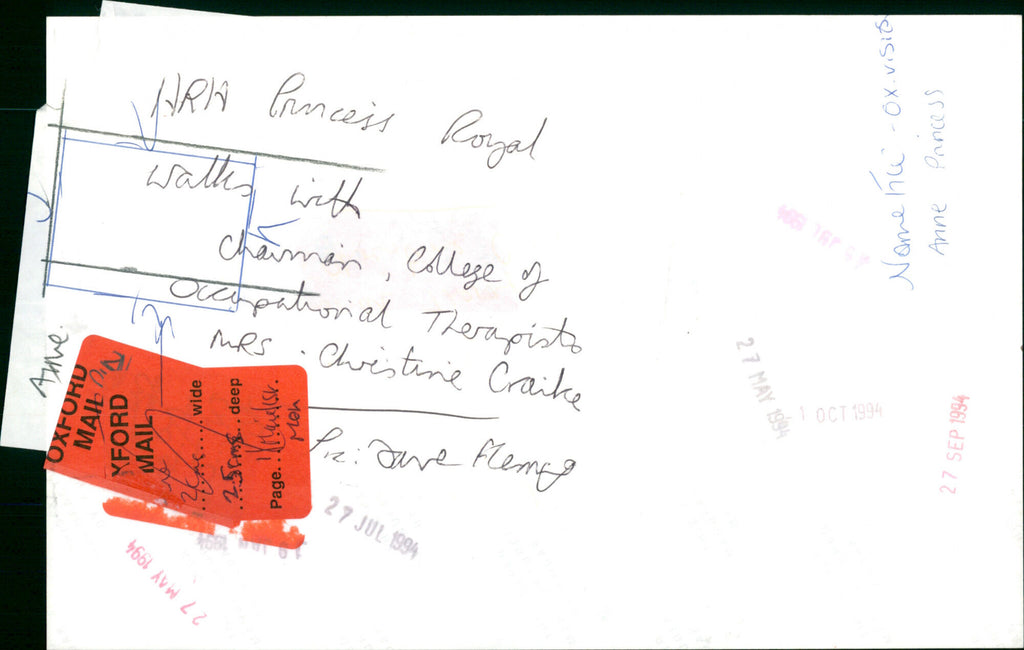 HRH Princess Royal
walks with
Chairman, College of
Occupational Therapists
MRS. Christine Craike
Pic: Dave Fleming
Anne.
OXFORD
MAIL
OXFORD
MAIL
wide
2.5cms deep
Page
Mon
Anne Princess
27 MAY 1994
1 OCT 1994
27 SEP 1994
27 JUL 1994
27 MAY 1994